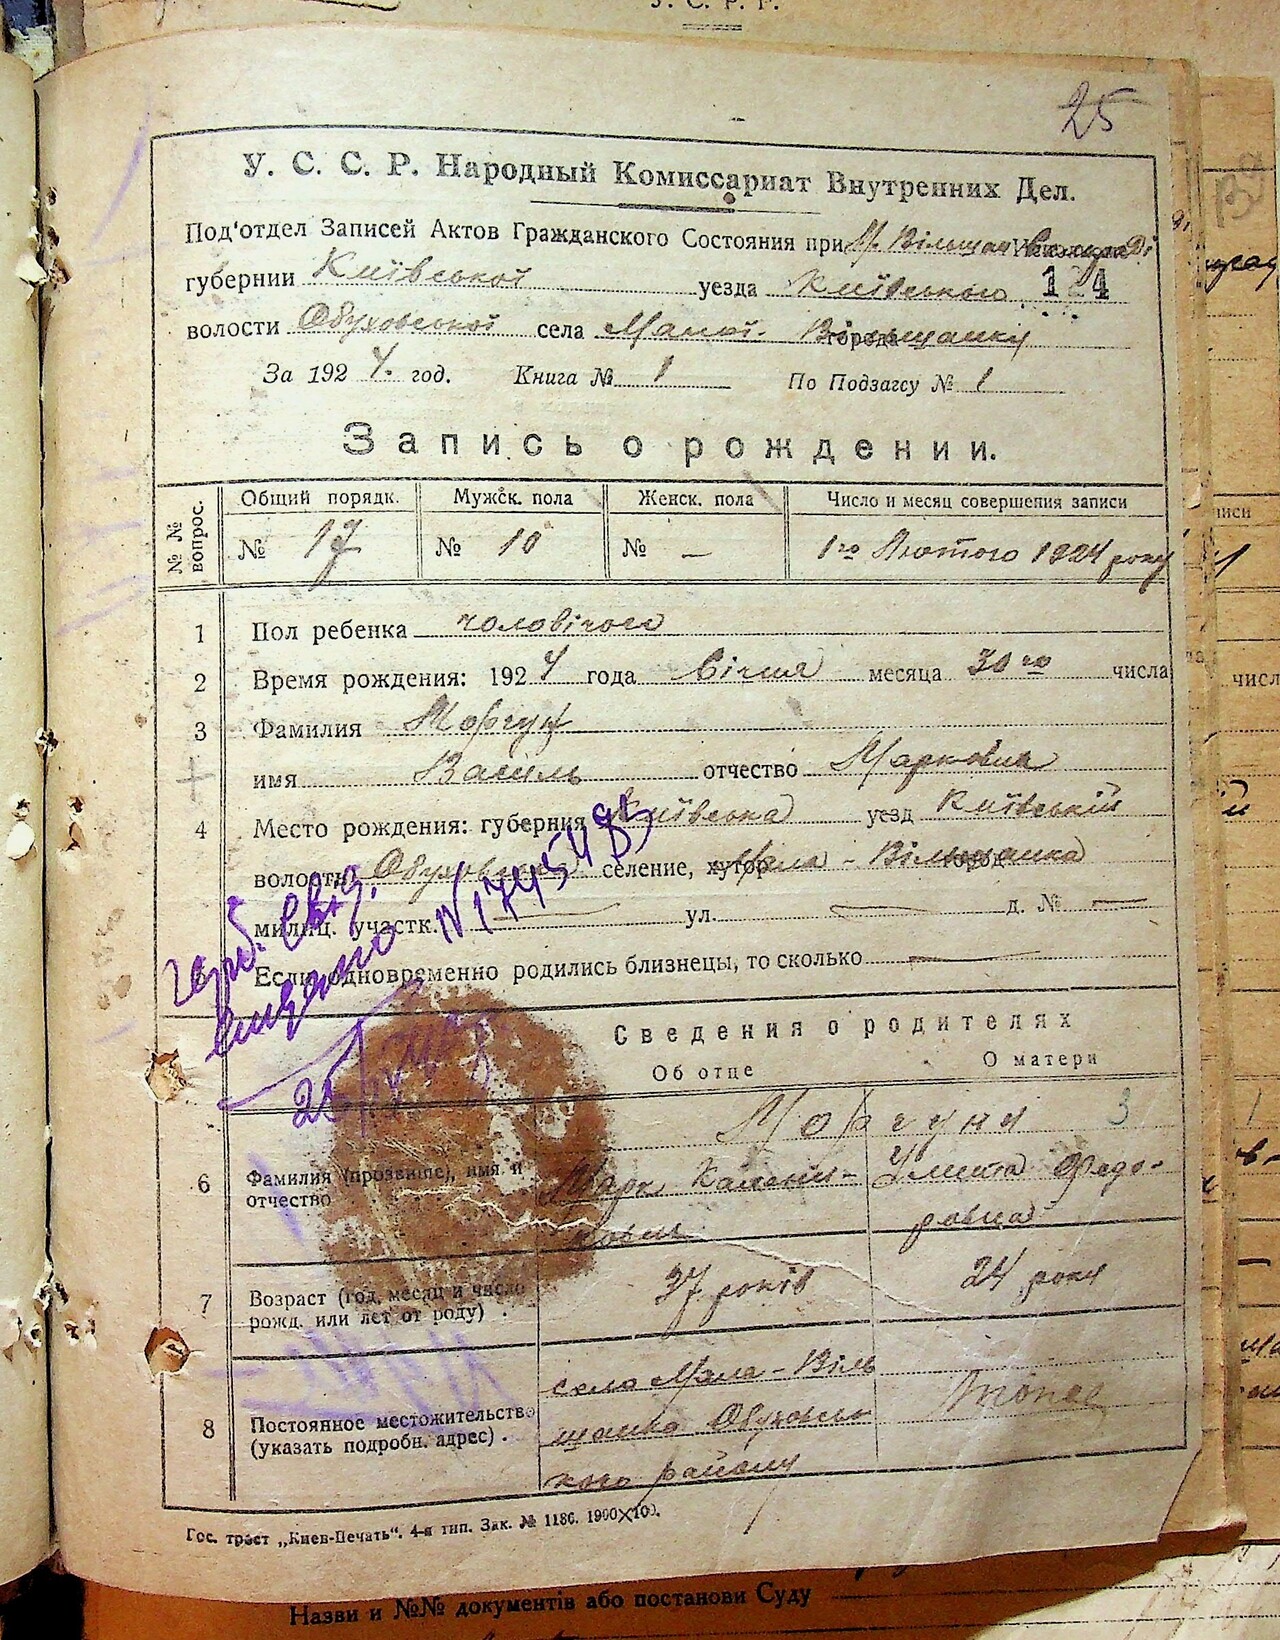 У. С. Р. Р.
25
У. С. С. Р. Народный Комиссариат Внутренних Дел.
Под'отдел Записей Актов Гражданского Состояния при М. Вільшан
губернии Київської уезда Київського 124
волости Обуховської села Малої Вільшанки города
За 1924. год. Книга № 1 По Подзагсу № 1
Запись о рождении.
№ № вопрос.
Общий порядк. Мужск. пола Женск. пола Число и месяц совершения записи
№ 17 № 10 № — 1го Лютого 1924 року
1 Пол ребенка чоловічого
2 Время рождения: 1924 года Січня месяца 30го числа
3 Фамилия Моргун
имя Василь отчество Маркович
4 Место рождения: губерния Київська уезд Київський
волость Обуховська селение, хутор Мала-Вільшанка город
милиц. участк. — ул. — д. № —
Если одновременно родились близнецы, то сколько —
герб. Свід.
видано N 174548
Сведения о родителях
Об отце О матери
Моргуни 3
6 Фамилия (прозвище), имя и Марк Улита Федо-
отчество ровна
7 Возраст (год, месяц и число 37 років 24 роки
рожд. или лет от роду) .
село Мала-Віль
8 Постоянное местожительство шанка Обуховсь
(указать подробн. адрес) . кого району
Гос. трест „Киев-Печать“. 4-я тип. Зак. № 1186. 1900×100.
Назви и №№ документів або постанови Суду